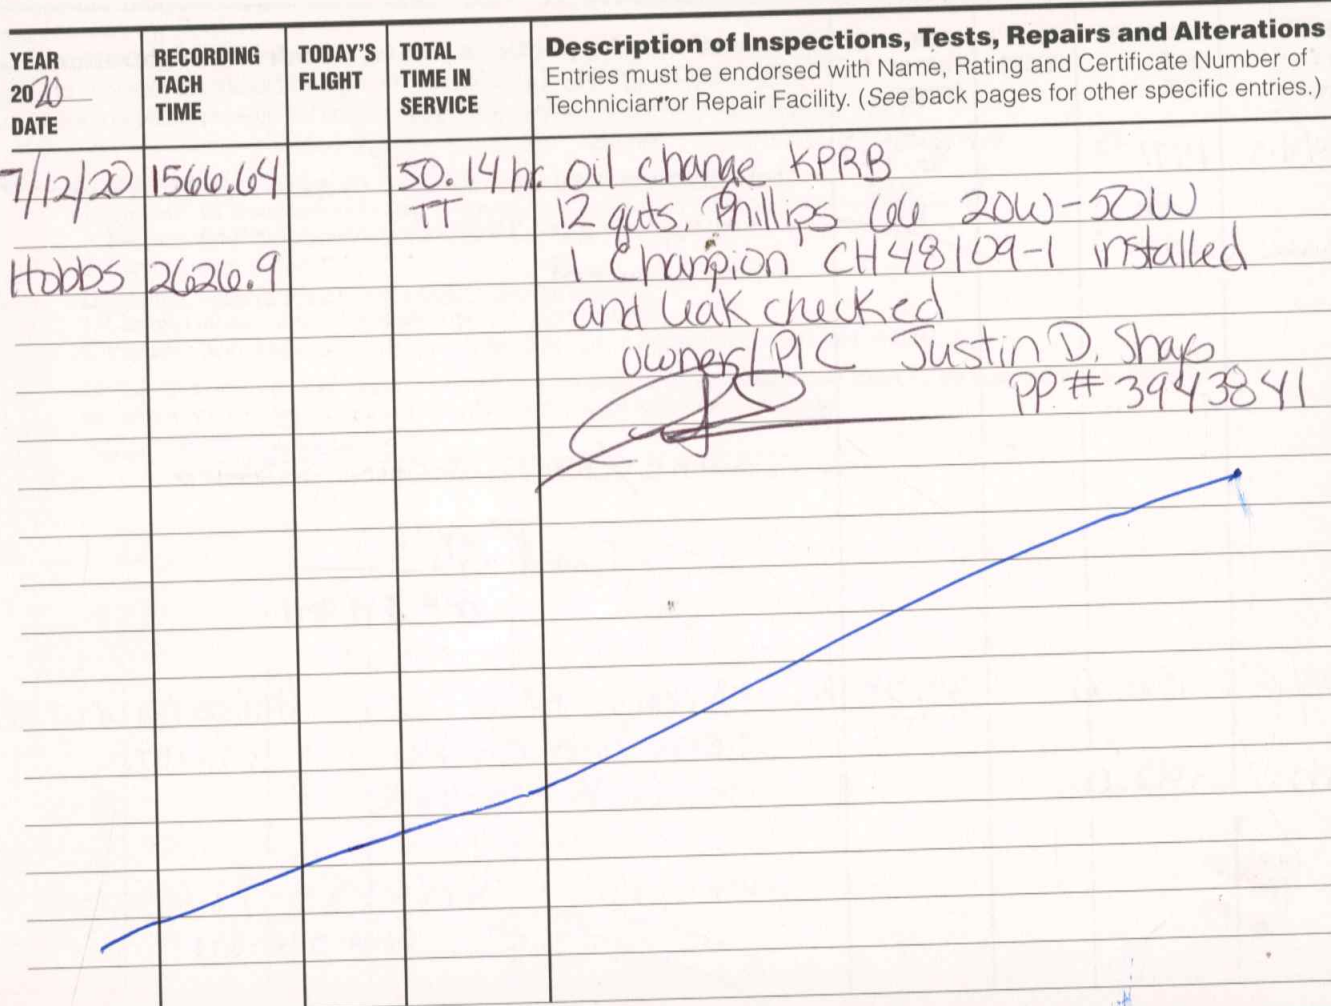 YEAR
2020
DATE
RECORDING
TACH
TIME
TODAY'S
FLIGHT
TOTAL
TIME IN
SERVICE
Description of Inspections, Tests, Repairs and Alterations
Entries must be endorsed with Name, Rating and Certificate Number of
Technician or Repair Facility. (See back pages for other specific entries.)
7/12/20 1566.64 50.14 hr. oil change KPRB
TT 12 quts. Phillips 66 20W-50W
Hobbs 2626.9 1 Champion CH48109-1 installed
and leak checked
owner/PIC Justin D.
PP# 3943841